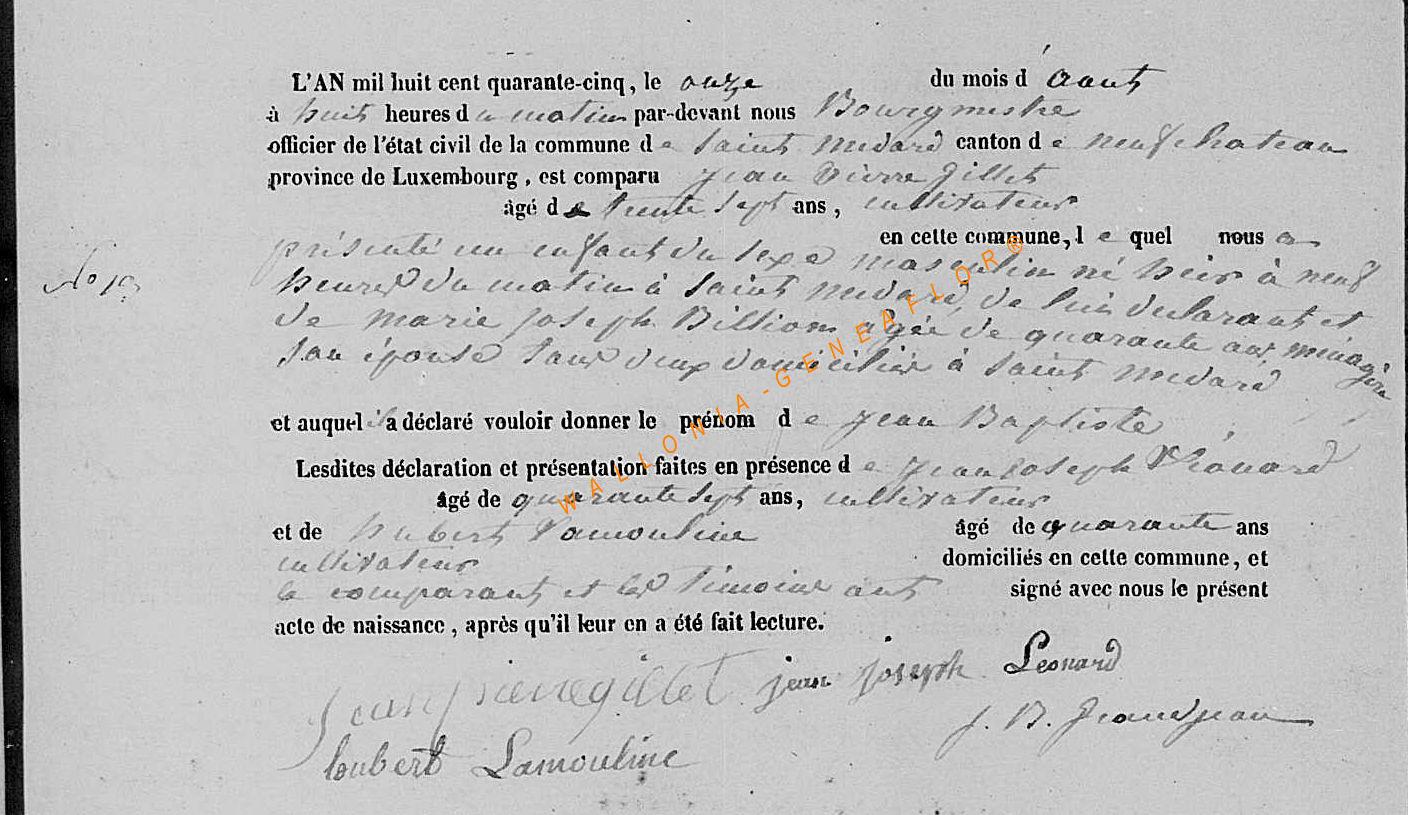 L'AN mil huit cent quarante-cinq, le onze du mois d'aout
à huit heures du matin par-devant nous Bourgmestre
officier de l'état civil de la commune de Saint Médard canton de neufchateau
province de Luxembourg, est comparu Jean Pierre Gillet
âgé de trente sept ans, cultivateur
en cette commune, lequel nous a
No 19
présenté un enfant du sexe masculin né hier à neuf
heures du matin à Saint Médard, de lui déclarant et
de marie joseph Billion agée de quarante ans, ménagère
son épouse tous deux domiciliés à Saint Médard
et auquel il a déclaré vouloir donner le prénom de Jean Baptiste
Lesdites déclaration et présentation faites en présence de Jean Joseph Léonard
âgé de quarante sept ans, cultivateur
et de hubert Lamouline âgé de quarante ans
cultivateur domiciliés en cette commune, et
le comparant et les témoins ont signé avec nous le présent
acte de naissance, après qu'il leur en a été fait lecture.
jean pierre gillet jean joseph Leonard
J. B. Grandjean
hubert Lamouline
WALLONIA-GENEAFLOR®